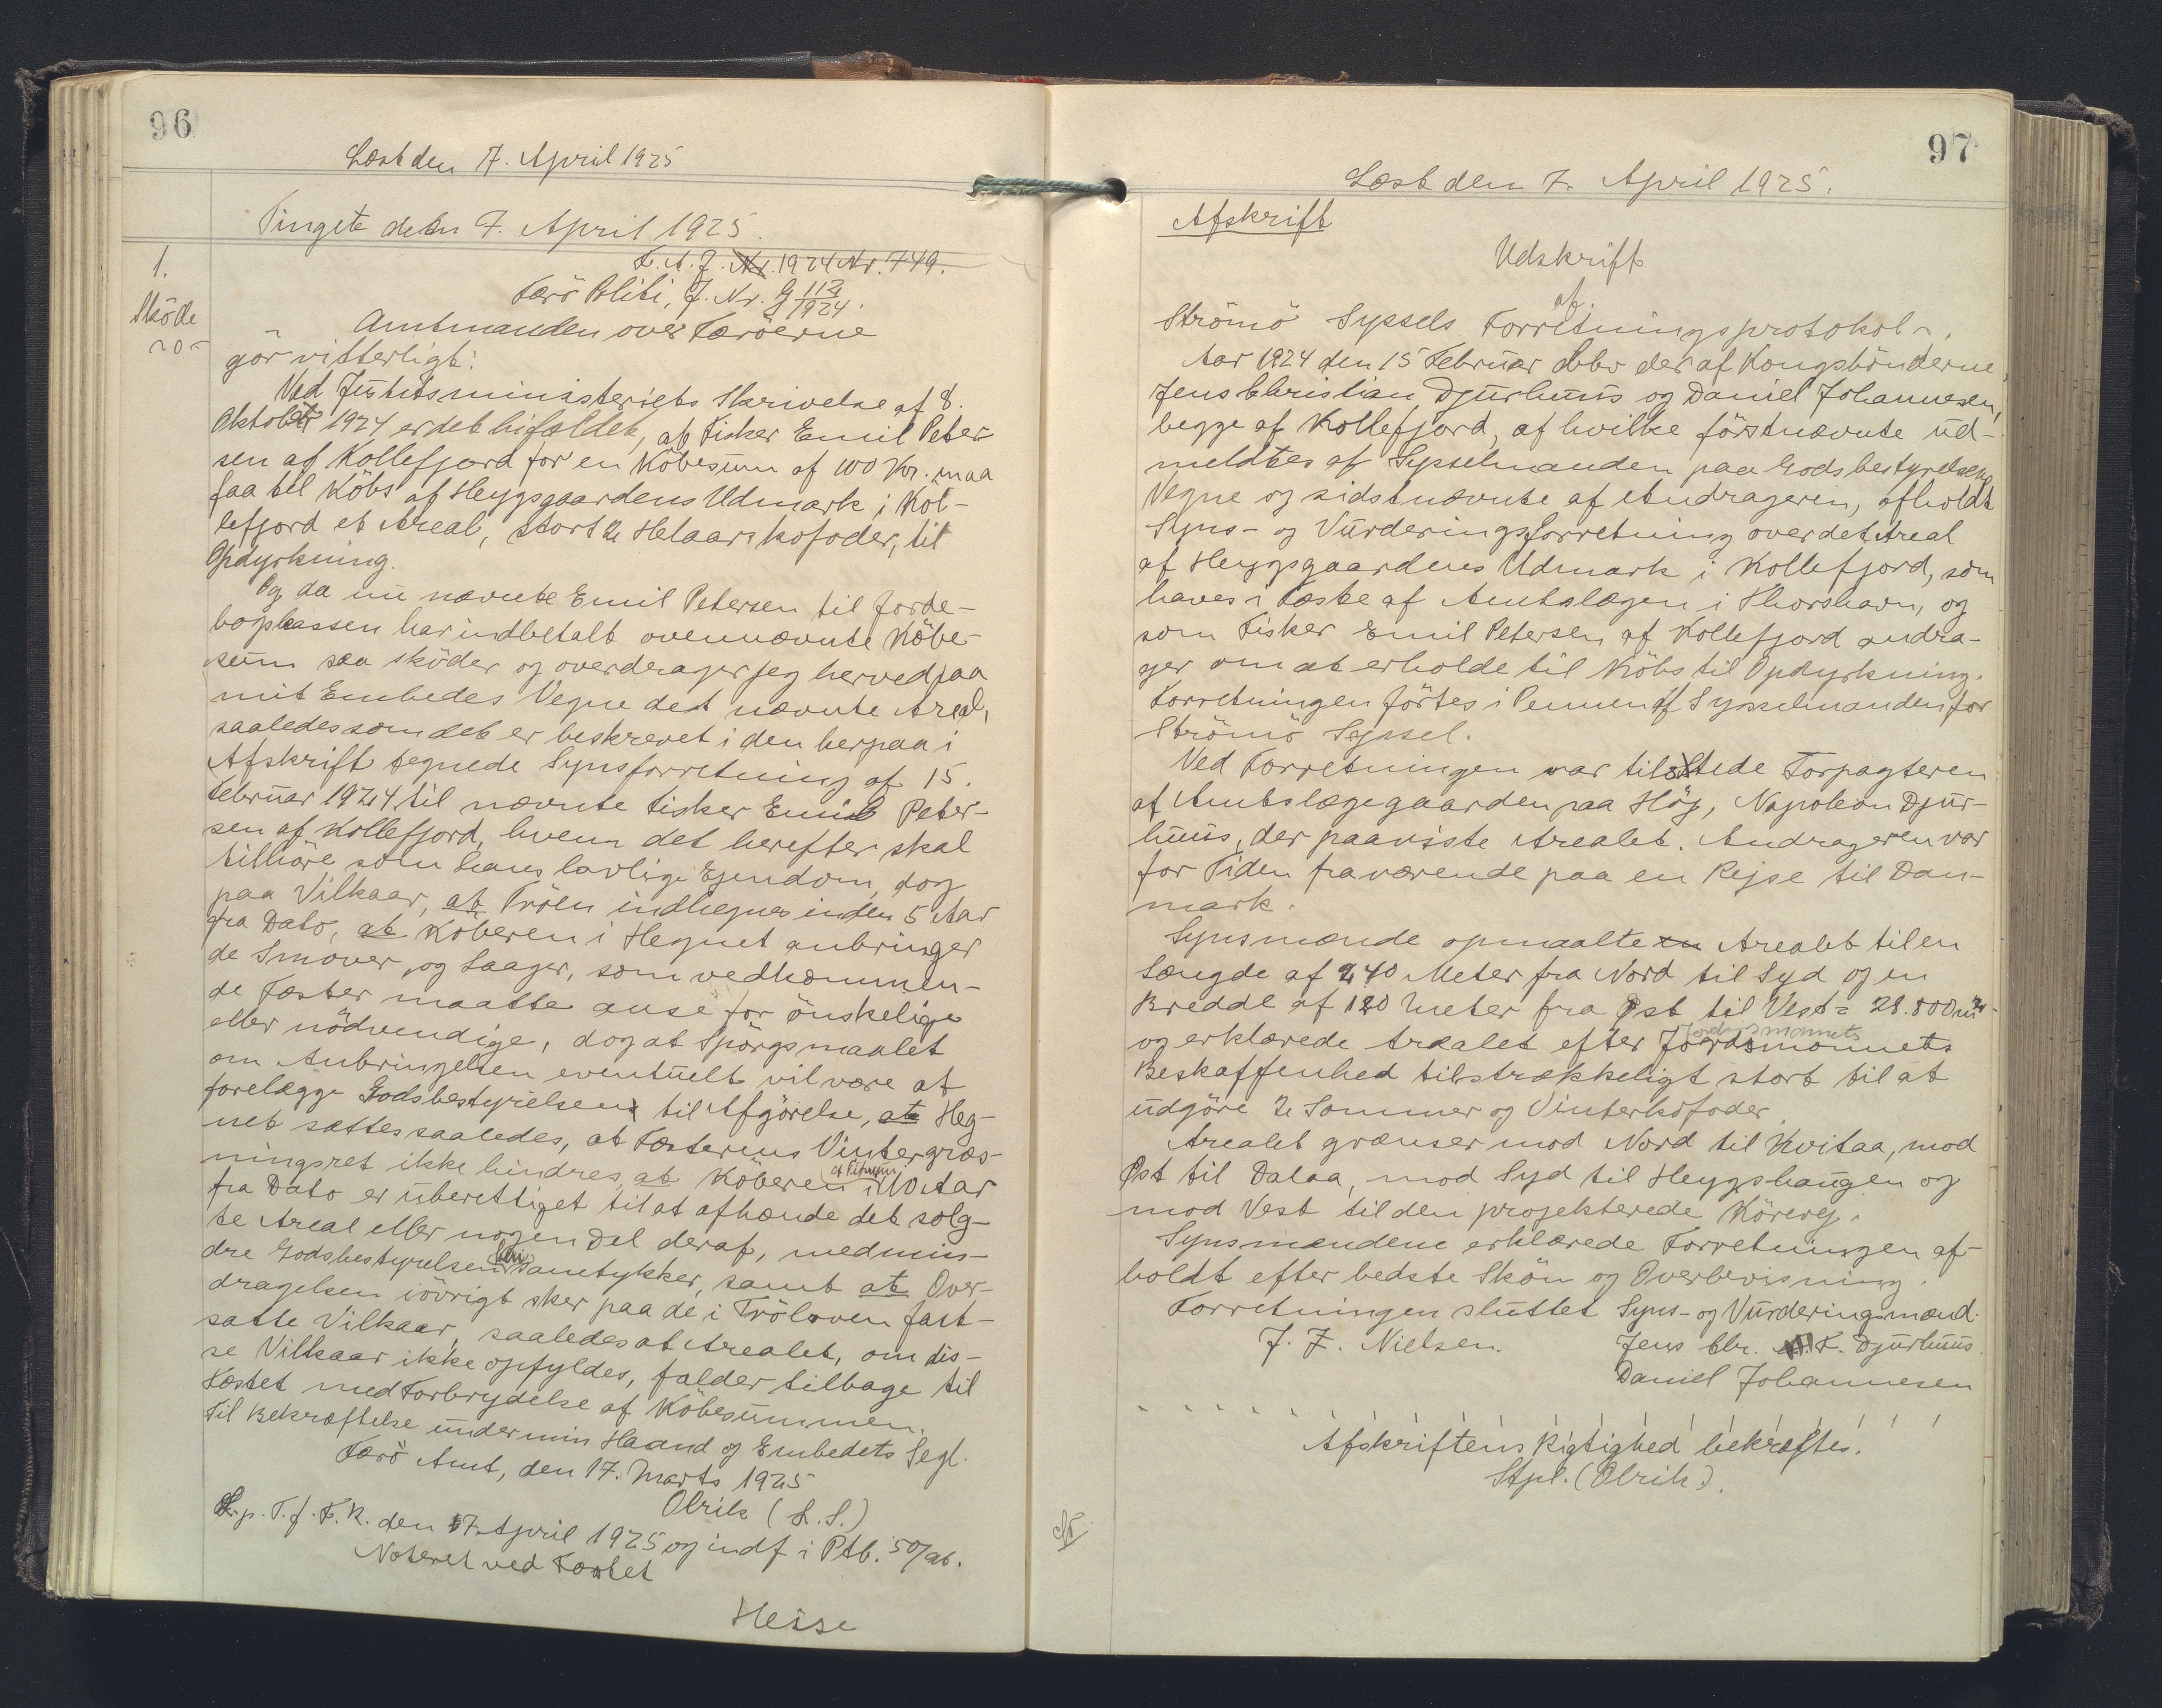 96
Læst den 7. April 1925
Tinget den 7. April 1925.
1.
Sköde
F. A. J. Nr. 1924 Nr. 749.
Færö Politi, J. Nr. G 112/1924.
Amtmanden over Færöerne
gör vitterligt:
Ved Justitsministeriets Skrivelse af 8.
Oktober 1924 er det bifaldet, at Fisker Emil Peter-
sen af Kollefjord for en Köbesum af 100 Kr. maa
faa til Köbs af Heygsgaardens Udmark i Kol-
lefjord et Areal, stort 2 Helaarskofoder, til
Opdyrkning.
Og da nu nævnte Emil Petersen til Jorde-
bogskassen har indbetalt ovennævnte Köbe-
sum saa sköder og overdrager jeg herved paa
mit Embedes Vegne det nævnte Areal,
saaledes som det er beskrevet i den herpaa i
Afskrift tegnede Synsforretning af 15.
Februar 1924 til nævnte Fisker Emil Peter-
sen af Kollefjord, hvem det herefter skal
tilhöre som hans lovlige Ejendom, dog
paa Vilkaar, at Tröen indhegnes inden 5 Aar
fra Dato, at Köberen i Hegnet anbringer
de Smover og Laager, som vedkommen-
de Fæster maatte anse for önskelige
eller nödvendige, dog at Spörgsmaalet
om Anbringelsen eventuelt vil være at
forelægge Godsbestyrelsen til Afgörelse, at Heg-
net sættes saaledes, at Fæsterens Vintergræs-
ningsret ikke hindres, at Köberen i 10 Aar
fra Dato er uberettiget til at afhænde det solg-
te Areal eller nogen Del deraf, medmin-
dre Godsbestyrelsen samtykker, samt at Over-
dragelsen iövrigt sker paa de i Tröloven fast-
satte Vilkaar, saaledes at Arealet, om dis-
se Vilkaar ikke opfyldes, falder tilbage til
Fæstet med Forbrydelse af Köbesummen.
Til Bekræftelse under min Haand og Embedets Segl.
Færö Amt, den 17. Marts 1925
Olrik (L. S.)
L. p. T. f. F. R. den 7. April 1925 og indf i Ptb. 50/26.
Noteret ved Fæstet
Heise
97
Læst den 7. April 1925.
Afskrift
Udskrift
af
Strömö Syssels Forretningsprotokol.
Aar 1924 den 15 Februar blev der af Kongsbönderne,
Jens Christian Djurhuus og Daniel Johannesen,
begge af Kollefjord, af hvilke förstnævnte ud-
meldtes af Sysselmanden paa Godsbestyrelsens
Vegne og sidstnævnte af Andrageren, afholdt
Syns- og Vurderingsforretning over det Areal
af Heygsgaardens Udmark i Kollefjord, som
haves i Fæste af Amtslægen i Thorshavn, og
som Fisker Emil Petersen af Kollefjord andra-
ger om at erholde til Köbs til Opdyrkning.
Forretningen förtes i Pennen af Sysselmanden for
Strömö Syssel.
Ved Forretningen var tilstede Forpagteren
af Amtslægegaarden paa Hög, Napoleon Djur-
huus, der paaviste Arealet. Andrageren var
for Tiden fraværende paa en Rejse til Dan-
mark.
Synsmænde opmaalte Arealet til en
Længde af 240 Meter fra Nord til Syd og en
Bredde af 120 Meter fra Öst til Vest = 28.800 m²
Jordsmonnets
og erklærede Arealet efter Jordsmonnets
Beskaffenhed tilstrækkeligt stort til at
udgöre 2 Sommer og Vinterkofoder
Arealet grænser mod Nord til Kvitaa, mod
Øst til Dalaa, mod Syd til Heygshaugen og
mod Vest til den projekterede Körevej.
Synsmændene erklærede Forretningen af-
holdt efter bedste Skön og Overbevisning.
Forretningen sluttet Syns- og Vurderingsmænd.
J. F. Nielsen. Jens Chr. F. Djurhuus.
Daniel Johannesen
Afskriftens Rigtighed bekræftes.
Stpl. (Olrik).